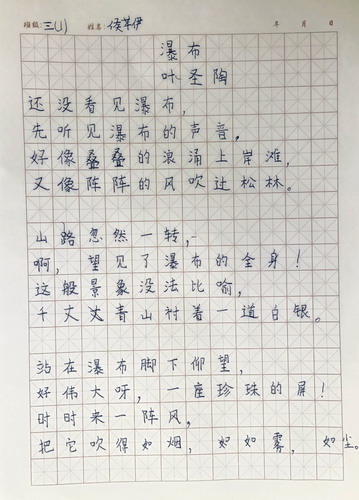 班级：三(1) 姓名：侯芊伊 年 月 日
瀑布
叶圣陶
还没看见瀑布，
先听见瀑布的声音。
好像叠叠的浪涌上岸滩，
又像阵阵的风吹过松林。
山路忽然一转，
啊，望见了瀑布的全身！
这般景象没法比喻，
千丈丈青山衬着一道白银。
站在瀑布脚下仰望，
好伟大呀，一座珍珠的屏！
时时来一阵风，
把它吹得如烟，如雾，如尘。